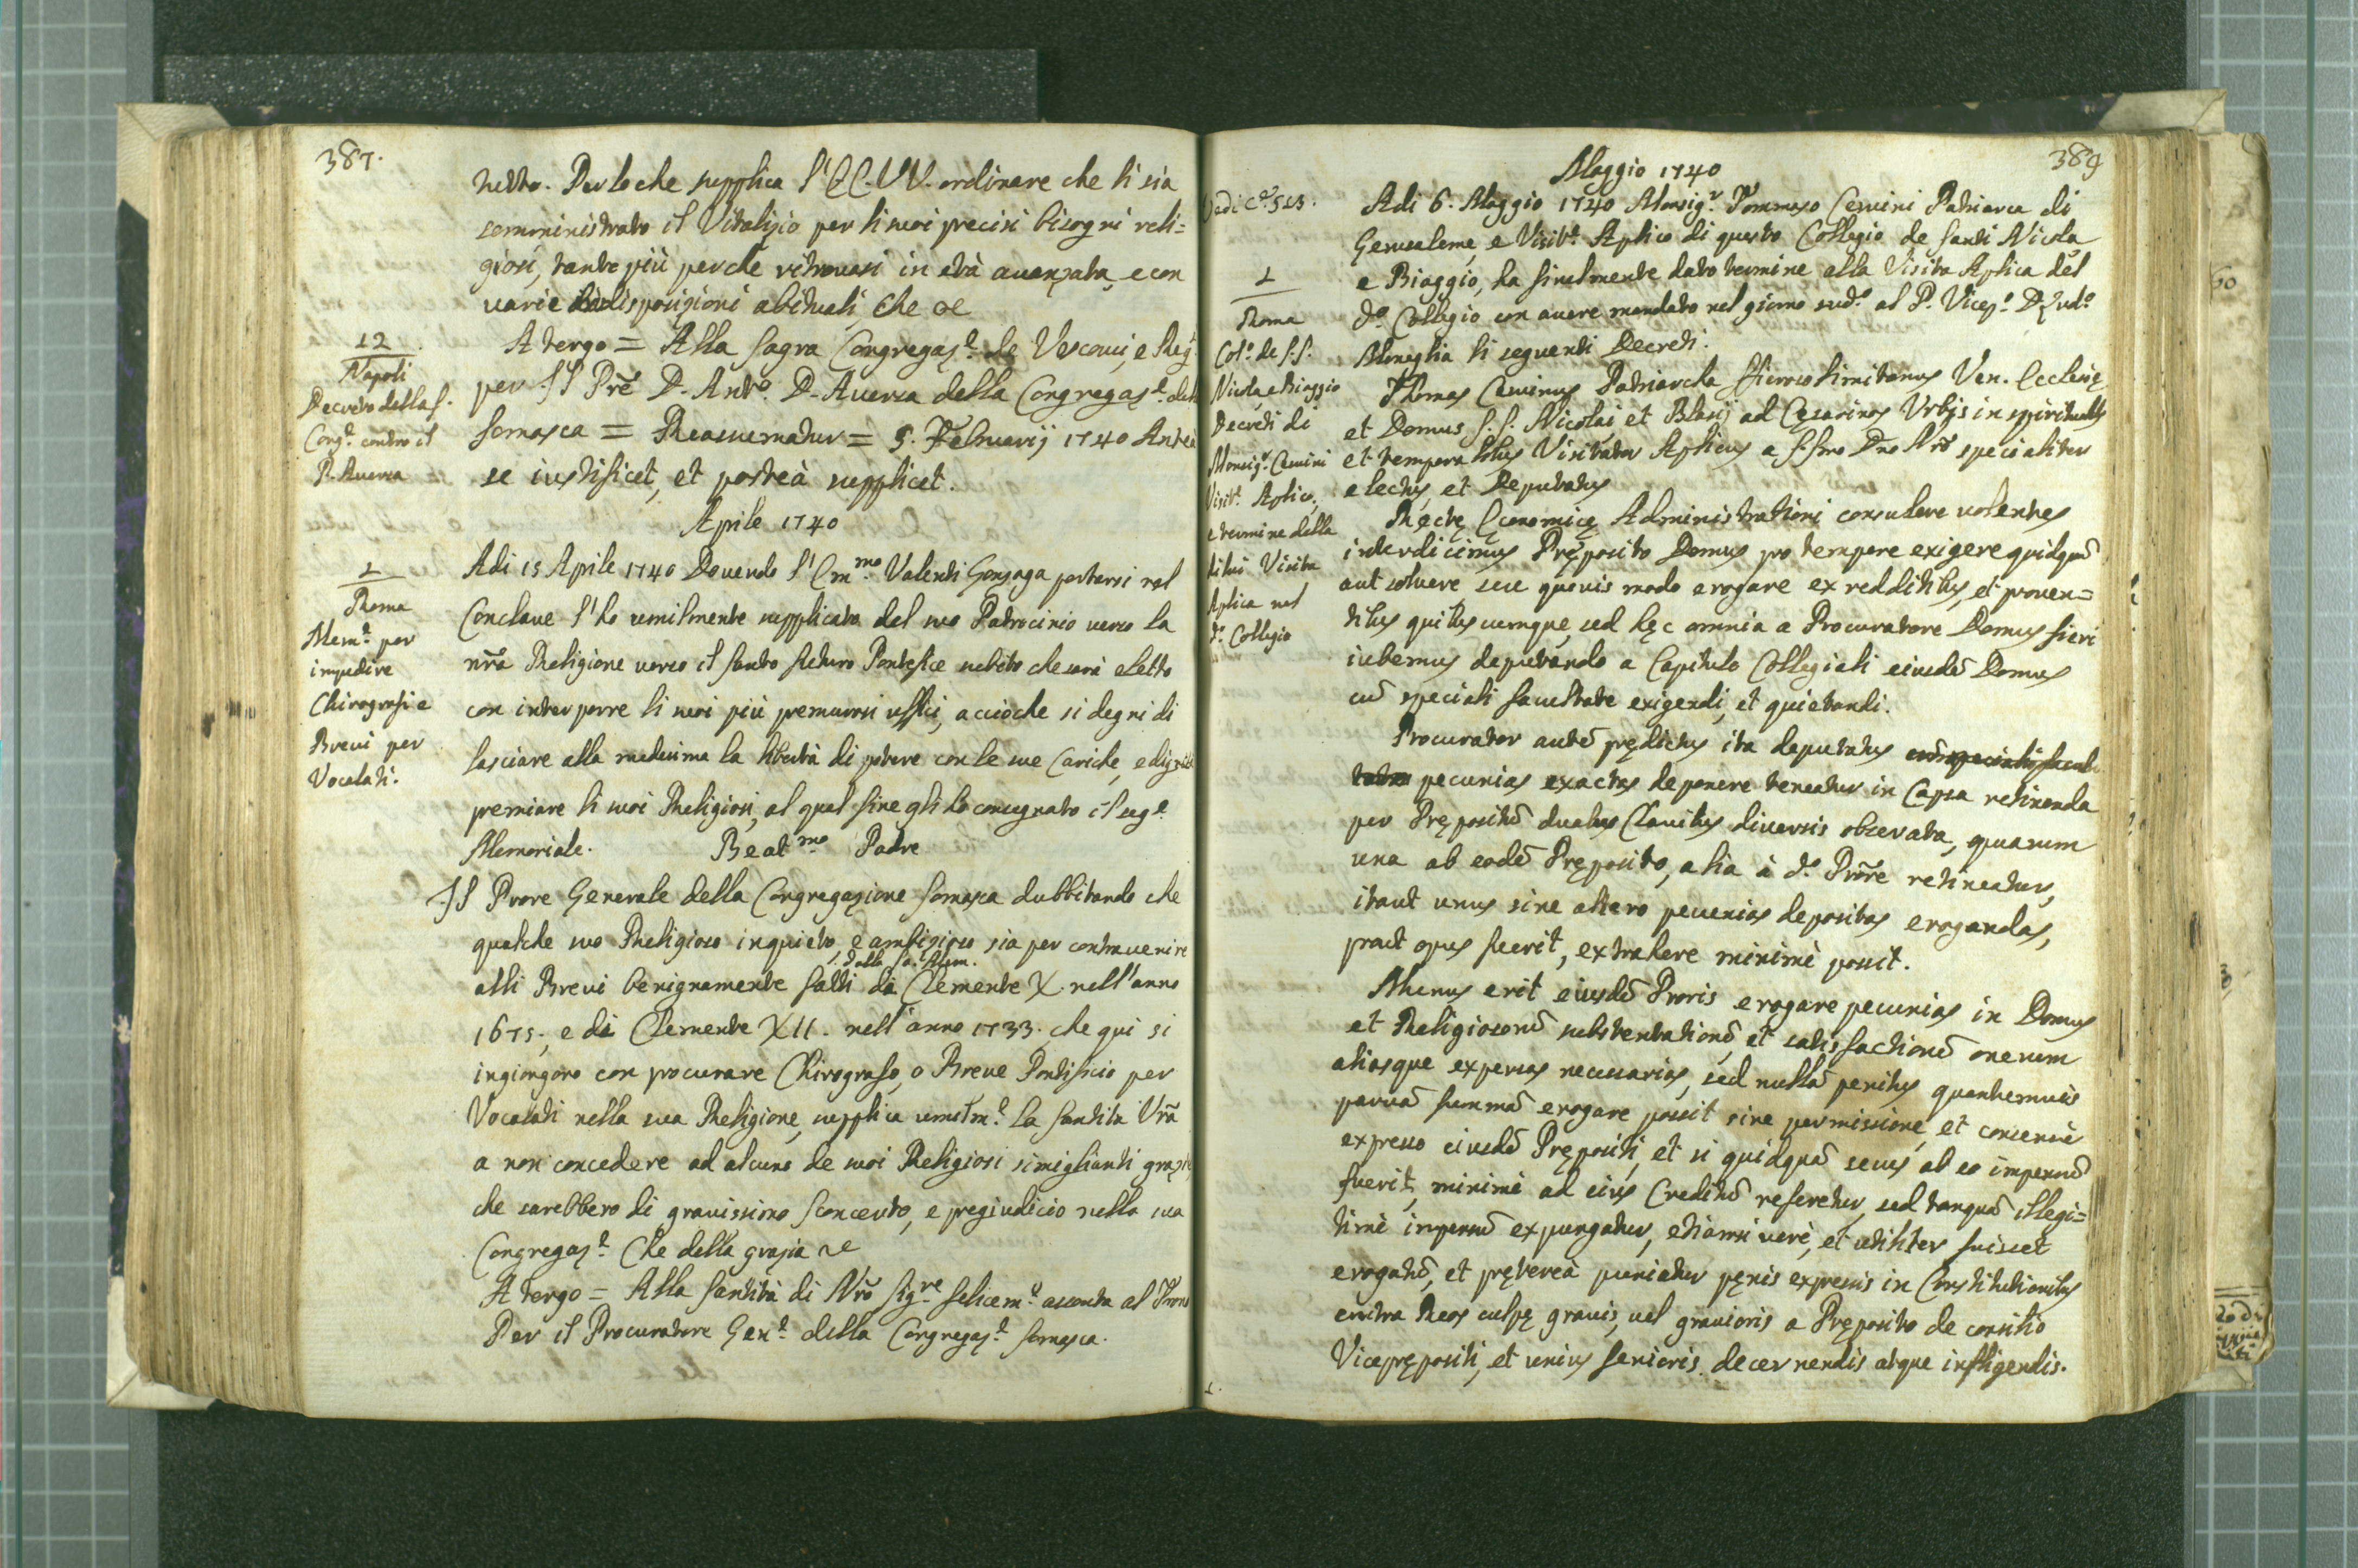 387.
netto. Perloche supplica l'EE.VV. ordinare che li sia
somministrato il Vitalizio per li suoi precisi bisogni reli=
giosi, tanto più perche ritrovasi in età avanzata, e con
varie indisposizioni abituali, Che &c
A tergo = Alla Sagra Congregaz.e de Vescovi, e Reg.
per = Il Pre D. Ant.o D. Aversa della Congregaz.e della
Somasca = Reassumatur = 5. Februarij 1740 Antea
se iustificet, et posteà supplicet.
12
Napoli
Decreto della S.
Cong.e contro il
P. Aversa
Aprile 1740
Adi 15 Aprile 1740 Dovendo l'Em.mo Valenti Gonzaga portarsi nel
Conclave l'ho umilmente supplicato del suo Patrocinio verso la
nra Religione verso il Santo futuro Pontefice subito che sarà eletto
con interporre li suoi più premurosi uffici, accioche si degni di
lasciare alla medesima la libertà di potere con le sue Cariche, e dignità
premiare li suoi Religiosi, al qual fine gli ho consegnato il seg.e
Memoriale. Beat.mo Padre
1
Roma
Mem.e per
impedire
Chirografi e
Brevi per
Vocalati.
Il Prore Generale della Congregazione Somasca dubbitando che
qualche suo Religioso inquieto, e ambizioso sia per contravenire
dalla Sa: Mem.
alli Brevi benignamente fatti da Clemente X. nell'anno
1675., e di Clemente XII. nell'anno 1733. che qui si
ingiongono con procurare Chirografo, o Breve Pontificio per
Vocalati nella sua Religione, supplica umilm.e la Santità Vra
a non concedere ad alcuno de suoi Religiosi simiglianti grazie
che sarebbero di gravissimo sconcerto, e pregiudicio nella sua
Congregaz.e Che della grazia &c
A tergo = Alla Santità di Nro Sig.re felicem.e assonta al Trono
Per il Procuratore Gen.e della Congregaz.e Somasca.
389
Maggio 1740
Vedi C.e 523.
Adi 6. Maggio 1740 Monsig.r Tommaso Cervini Patriarca di
Gerusaleme, e Visit.r Aplico di questo Collegio de Santi Nicola
e Biaggio, ha finalmente dato termine alla Visita Aplica del
d.o Collegio con avere mandato nel giorno sud.o al P. Vicep.o D.
Moneglia li seguenti Decreti.
1
Roma
Col.o de S.S.
Nicola e Biaggio
Decreti di
Monsig.r Cervini
Visit.r Aplico,
e termine della
di lui Visita
Aplica nel
d.o Collegio
Thomas Cervinus Patriarcha Hierosolimitanus Ven. Ecclesię
et Domus S.S. Nicolai et Blasij ad Cęsarinos Urbis in spiritualibus
et temporalibus Visitator Aplicus a S.smo Dno Nro specialiter
electus, et Deputatus
Rectę Economicę Administrationi consulere volentes
interdicimus Pręposito Domus pro tempore exigere quidquã
aut solvere, seu quovis modo erogare ex redditibus, et proven=
tibus quibuscumque, sed hęc omnia a Procuratore Domus fieri
iubemus deputando a Capitulo Collegiali eiusdẽ Domus
cũ speciali facultate exigendi, et quietandi.
Procurator autẽ prędictus ita deputatus cum speciali facul
tate pecunias exactas deponere teneatur in Capsa retinenda
per Prępositũ duabus Clavibus diversis obserata, quarum
una ab eodẽ Pręposito, alia à d.o Prore retineatur,
itaut unus sine altero pecunias depositas erogandas,
prout opus fuerit, extrahere minimè possit.
Munus erit eiusdẽ Proris erogare pecunias in Domus
et Religiosorũ substentationẽ, et satisfactionẽ onerum
aliasque expensas necessarias, sed nullã penitus quantumvis
parvã summã erogare possit sine permissione, et consensu
expresso eiusdẽ Prępositi, et si quidquã secus ab eo impensũ
fuerit, minimè ad eius Creditũ referetur, sed tanquã illegi=
timè impensũ expungatur, etiamsi verè, et utiliter fuisset
erogatũ, et prętereà puniatur pęnis expressis in Constitutionibus
contra Reos culpę gravis, vel gravioris a Pręposito de consilio
Viceprępositi, et unius Senioris decernendis atque infligendis.